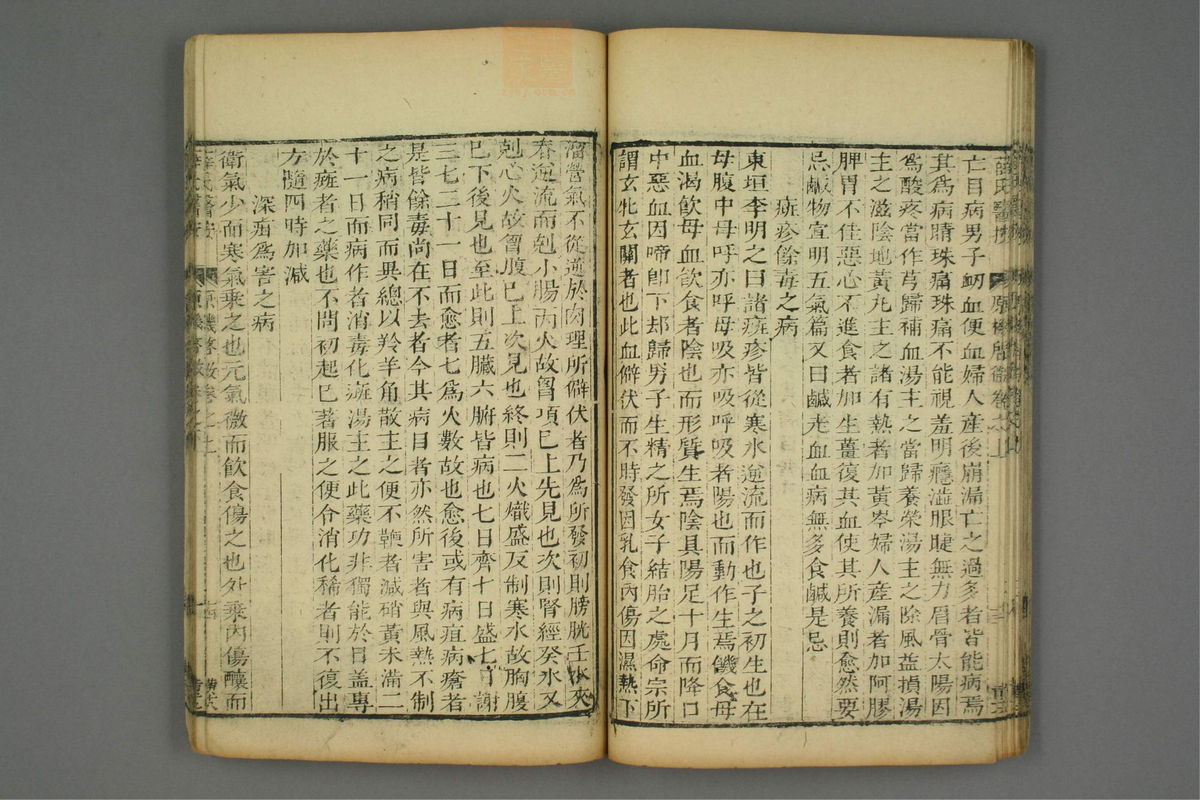 亡目病男子衂血便血婦人產後崩漏亡之過多者皆能病焉
其爲病睛珠痛珠痛不能視羞明癮澁眼睫無力眉骨太陽因
爲酸疼當作芎歸補血湯主之當歸養榮湯主之除風益損湯
主之滋陰地黃丸主之諸有熱者加黃芩婦人產漏者加阿膠
脾胃不佳惡心不進食者加生薑復其血使其所養則愈然要
忌鹹物宣明五氣篇又曰鹹走血血病無多食鹹是忌
癍疹餘毒之病
東垣李明之曰諸癍疹皆從寒水逆流而作也子之初生也在
母腹中母呼亦呼母吸亦吸呼吸者陽也而動作生焉饑食母
血渴飲母血飲食者陰也而形質生焉陰具陽足十月而降口
中惡血因啼卽下却歸男子生精之所女子結胎之處命宗所
謂玄牝玄關者也此血僻伏而不時發因乳食內傷因濕熱下
溜營氣不從逆於肉理所僻伏者乃爲所發初則膀胱壬水夾
脊逆流而剋小腸丙火故胷項已上先見也次則腎經癸水又
剋心火故胷腹已上次見也終則二火熾盛反制寒水故胸腹
已下後見也至此則五臟六腑皆病也七日齊十日盛七日謝
三七二十一日而愈者七爲火數故也愈後或有病疽病瘡者
是皆餘毒尚在不去者今其病目者亦然所害者與風熱不制
之病稍同而異總以羚羊角散主之便不鞕者減硝黃未滿二
十一日而病作者消毒化癍湯主之此藥功非獨能於目盖專
於癍者之藥也不問初起已著服之便令消化稀者則不復出
方隨四時加減
深疳爲害之病
衛氣少而寒氣乘之也元氣微而飲食傷之也外乘內傷釀而